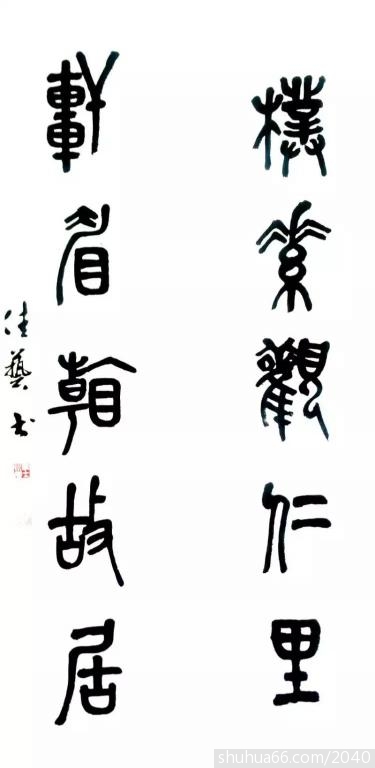 樸素觀仁里
軒眉朝故居
佳藝书
shuhua66.com/2040